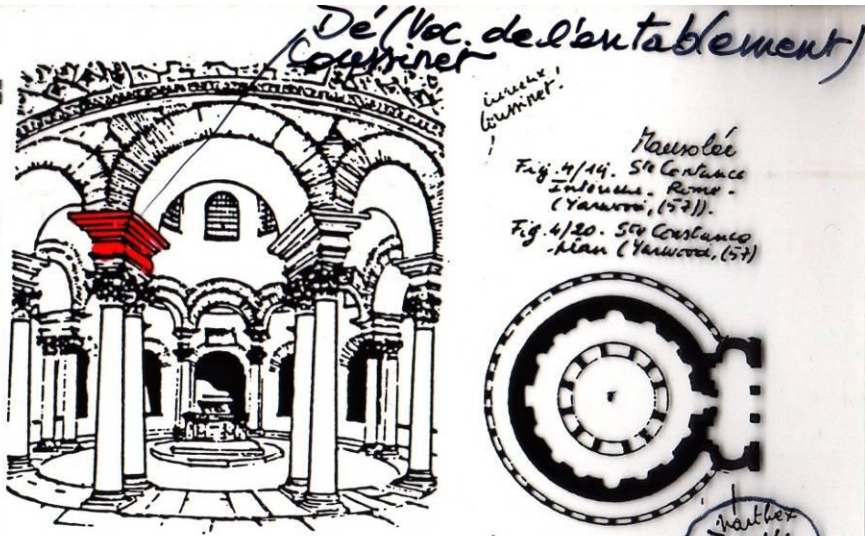 Dé (Voc. de l'entablement)
Coussinet
Coussinet!
!
Mausolée
Fig. 4/19. Ste Constance
Intérieur. Rome.
(Yarwood, (57)).
Fig. 4/20. Ste Constance
plan (Yarwood, (57)
narthex